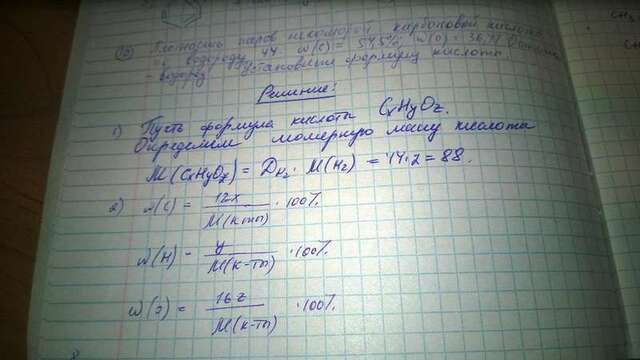 Плотность паров некоторой карбоновой кислоты
по водороду 44. ω(C) = 54,5%, ω(O) = 36,4%
- водород. Установить формулу кислоты
Решение:
1) Пусть формула кислоты CxHyOz.
Определим молярную массу кислоты
M(CxHyOz) = DH2 · M(H2) = 44·2 = 88.
2) ω(C) = 12x / M(к-ты) · 100%.
ω(H) = y / M(к-ты) · 100%
ω(O) = 16z / M(к-ты) · 100%.